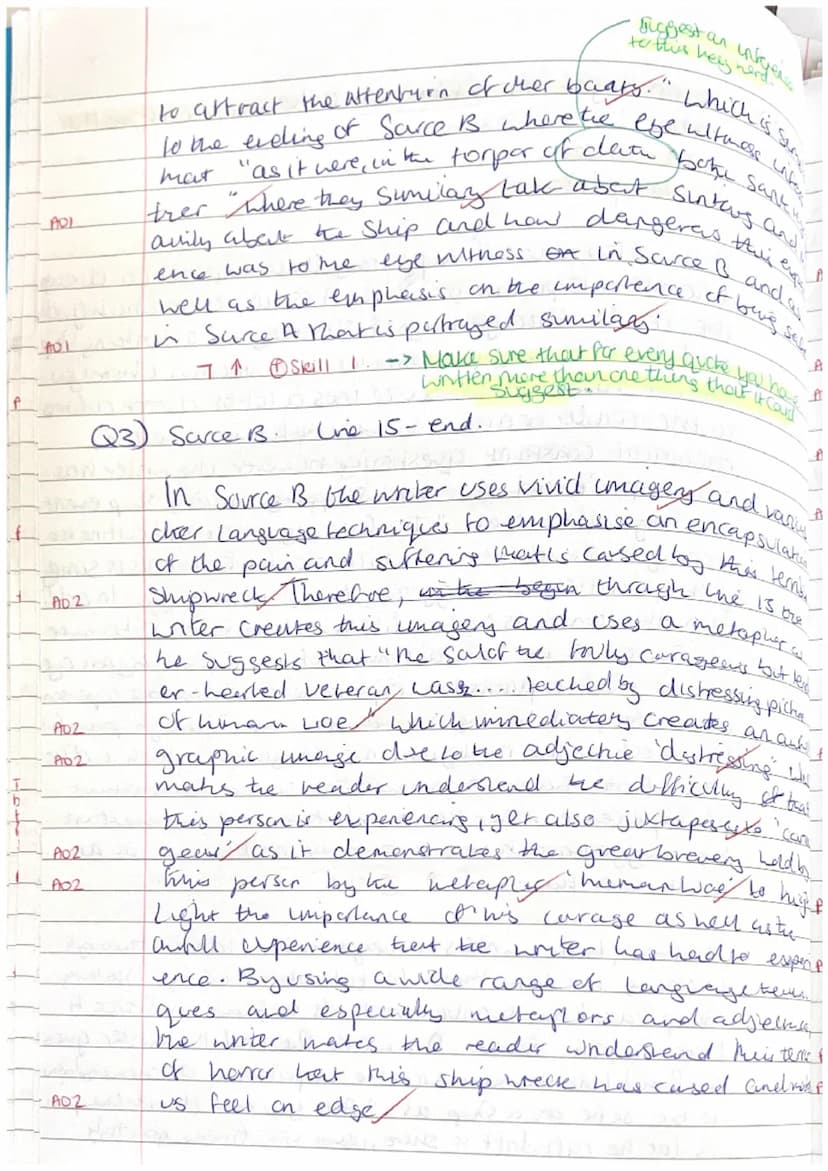 Suggest an inference
to this key word.
to attract the attention of other boats." which is
to the ending of Source B where the eye witness
that "as it were, in the torpor of death
ther "where they similarly talk about sinking and
AO1
avily about the ship and how dangerous this
ence was to the eye witness in Source B and as
well as the emphasis on the importance of being
in Source A that is portrayed similarly.
AO1
7 ↑ + Skill 1. -> Make sure that for every quote you have
written more than one thing that it could
suggest.
Q3) Source B. Line 15 - end.
In Source B the writer uses vivid imagery and
other language techniques to emphasise an
of the pain and suffering that is caused by this
shipwreck. Therefore, in the begin through line 15 the
AO2
writer creates this imagery and uses a metaphor
he suggests that "the soul of the truly courageous but
er-hearted veteran, was.... teached by distressing
of human woe" which immediately creates an
AO2
graphic image due to the adjective 'distressing'
AO2
makes the reader understand the difficulty of
this person is experiencing, yet also juxtaposes to 'coura
geous' as it demonstrates the great bravery held by
AO2
this person by the metaphor 'human woe' to high
AO2
light the importance of his courage as well as the
awful experience that the writer has had to experi
ence. By using a wide range of language techni
ques and especially metaphors and adjectives
the writer makes the reader understand this
of horror that this shipwreck has caused and
us feel on edge.
AO2